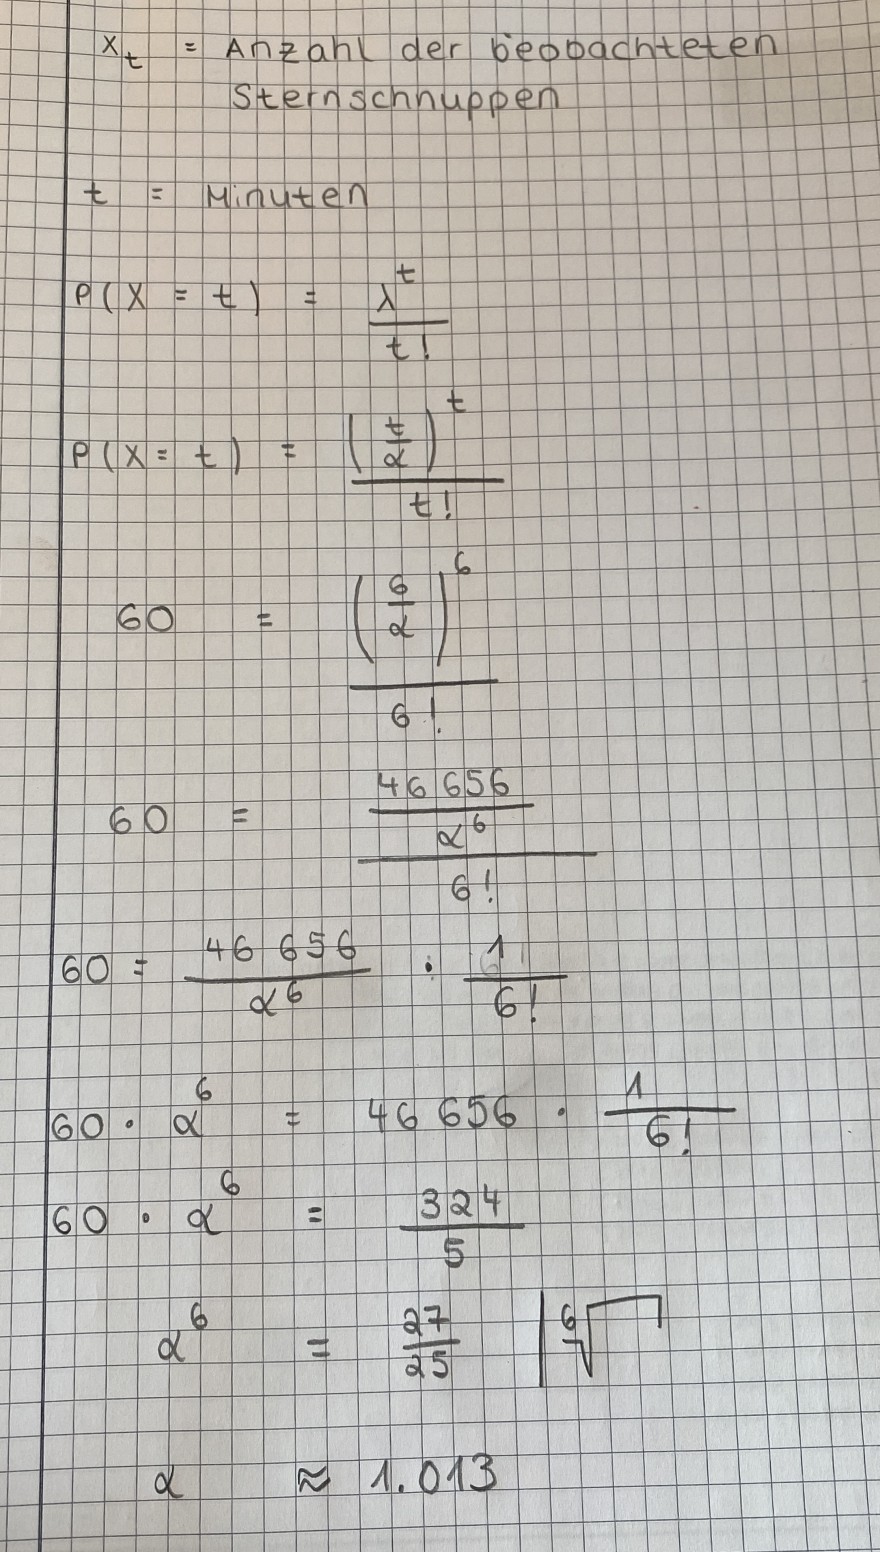 X_t = Anzahl der beobachteten
Sternschnuppen
t = Minuten
P(X = t) = λ^t / t!
P(X = t) = (t/α)^t / t!
60 = (6/α)^6 / 6!
60 = (46 656 / α^6) / 6!
60 = 46 656 / α^6 · 1 / 6!
60 · α^6 = 46 656 · 1 / 6!
60 · α^6 = 324 / 5
α^6 = 27 / 25 | ⁶√
α ≈ 1.013